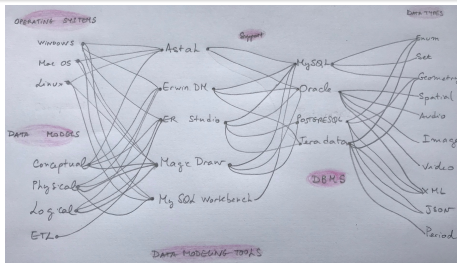 OPERATING SYSTEMS
WINDOWS
Mac OS
Linux
DATA MODELS
Conceptual
Physical
Logical
ETL
Astah
Erwin DM
ER Studio
Magic Draw
My SQL Workbench
DATA MODELING TOOLS
MySQL
Oracle
POSTGRESQL
Teradata
DBMS
DATA TYPES
Enum
Set
Geometry
Spatial
Audio
Image
Video
XML
JSON
Period